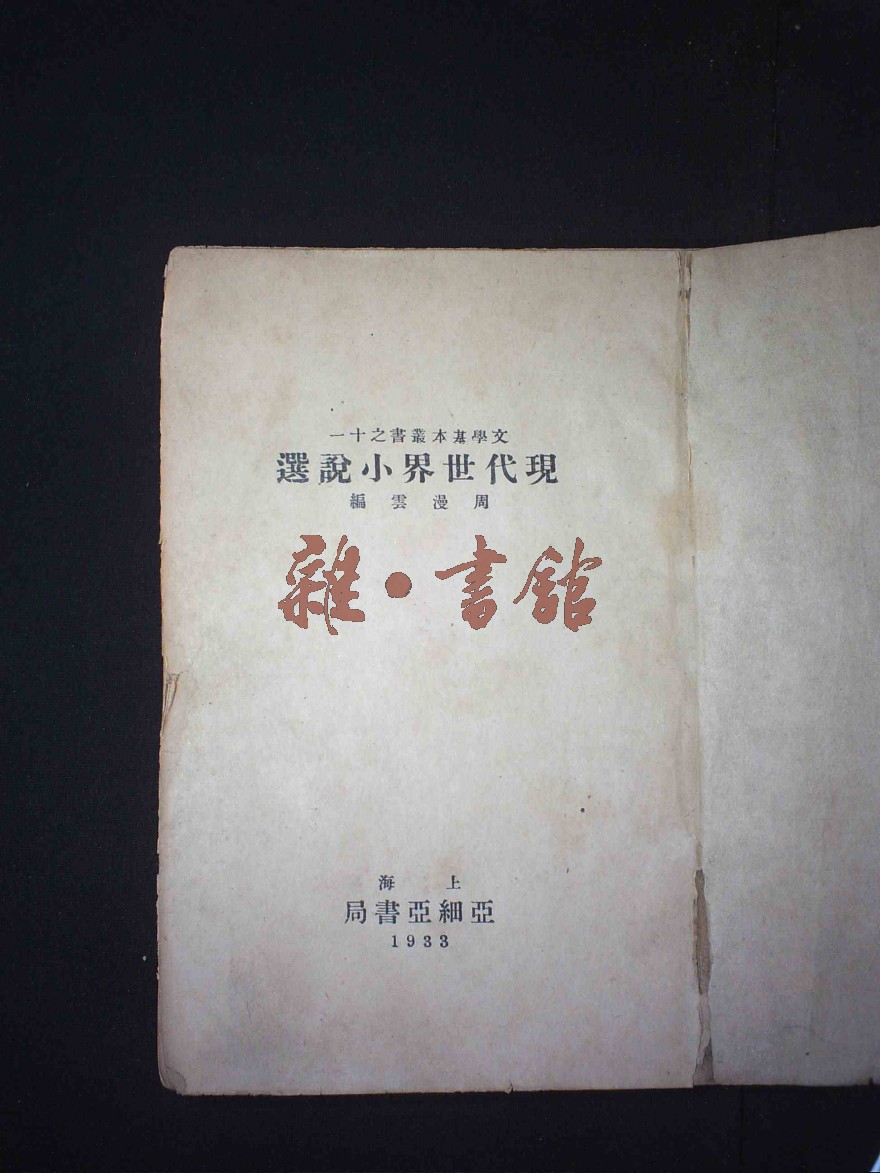 文學基本叢書之十一
現代世界小說選
周漫雲編
雜·書館
上海
亞細亞書局
1933